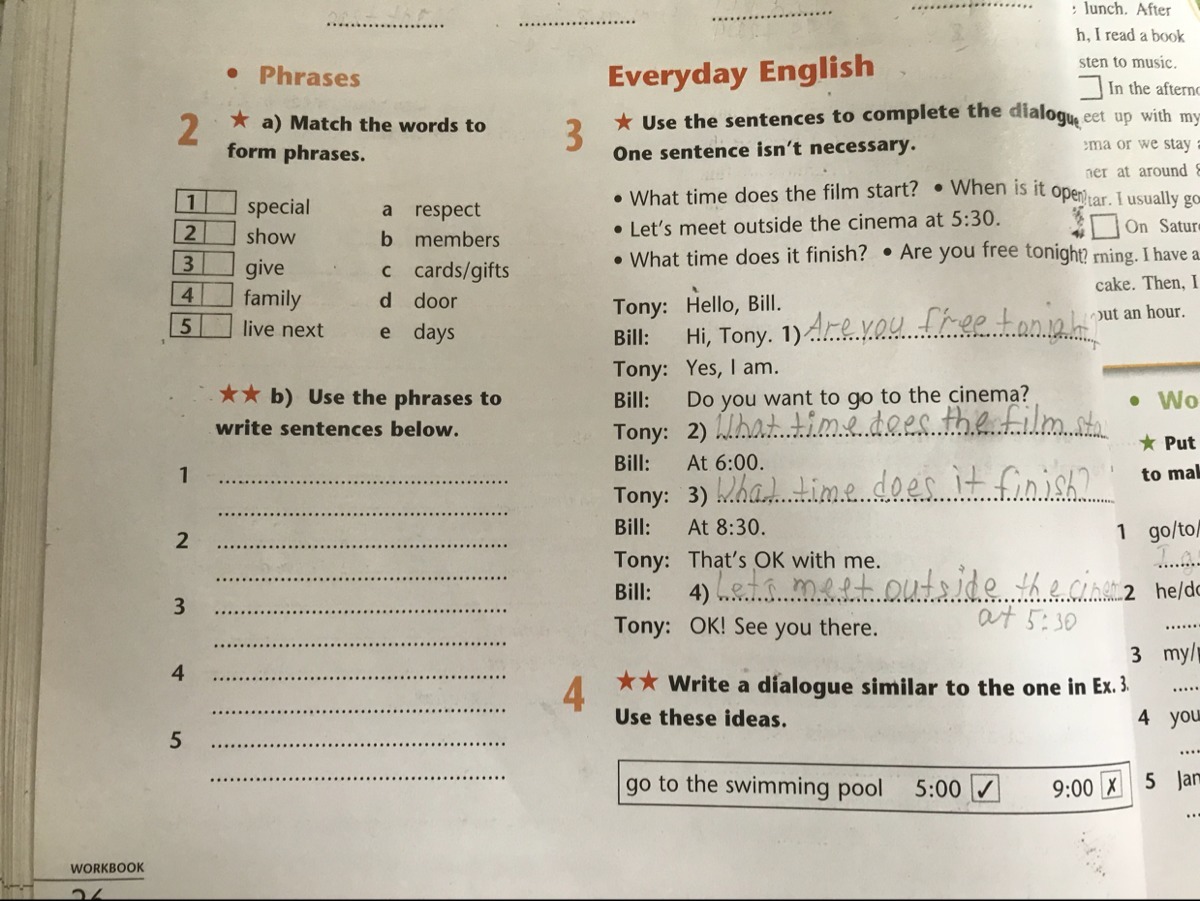 • Phrases
2 ★ a) Match the words to
form phrases.
1 special a respect
2 show b members
3 give c cards/gifts
4 family d door
5 live next e days
★★ b) Use the phrases to
write sentences below.
1
2
3
4
5
WORKBOOK
Everyday English
3 ★ Use the sentences to complete the dialogue
One sentence isn't necessary.
• What time does the film start? • When is it open
• Let's meet outside the cinema at 5:30.
• What time does it finish? • Are you free tonight?
Tony: Hello, Bill.
Bill: Hi, Tony. 1) Are you free tonigh
Tony: Yes, I am.
Bill: Do you want to go to the cinema?
Tony: 2) What time does the film sta
Bill: At 6:00.
Tony: 3) What time does it finish?
Bill: At 8:30.
Tony: That's OK with me.
Bill: 4) Let's meet outside the cinem
at 5:30
Tony: OK! See you there.
4 ★★ Write a dialogue similar to the one in Ex. 3.
Use these ideas.
go to the swimming pool 5:00 ✓ 9:00 ✗
lunch. After
h, I read a book
sten to music.
In the afterno
eet up with my
ema or we stay
ner at around 8
tar. I usually go
On Satur
rning. I have a
cake. Then, I
out an hour.
• Wo
★ Put
to mak
1 go/to/
2 he/do
3 my/
4 you
5 Jan